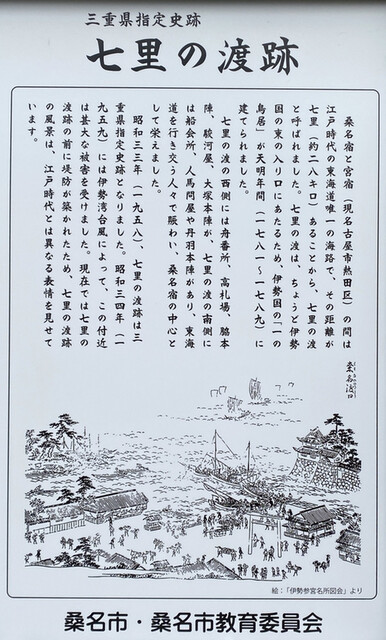 三重県指定史跡
七里の渡跡
桑名宿と宮宿（現名古屋市熱田区）の間は
江戸時代の東海道唯一の海路で、その距離が
七里（約二八キロ）あることから、七里の渡
と呼ばれました。七里の渡は、ちょうど伊勢
国の東の入り口にあたるため、伊勢国の「一の
鳥居」が天明年間（一七八一〜一七八九）に
建てられました。
七里の渡の西側には舟番所、高札場、脇本
陣、駿河屋、大塚本陣が、七里の渡の南側に
は船会所、人馬問屋や丹羽本陣があり、東海
道を行き交う人々で賑わい、桑名宿の中心と
して栄えました。
昭和三三年（一九五八）、七里の渡跡は三
重県指定史跡となりました。昭和三四年（一
九五九）には伊勢湾台風によって、この付近
は甚大な被害を受けました。現在では七里の
渡跡の前に堤防が築かれたため、七里の渡跡
の風景は、江戸時代とは異なる表情を見せて
います。
桑名渡口
絵：「伊勢参宮名所図会」より
桑名市・桑名市教育委員会